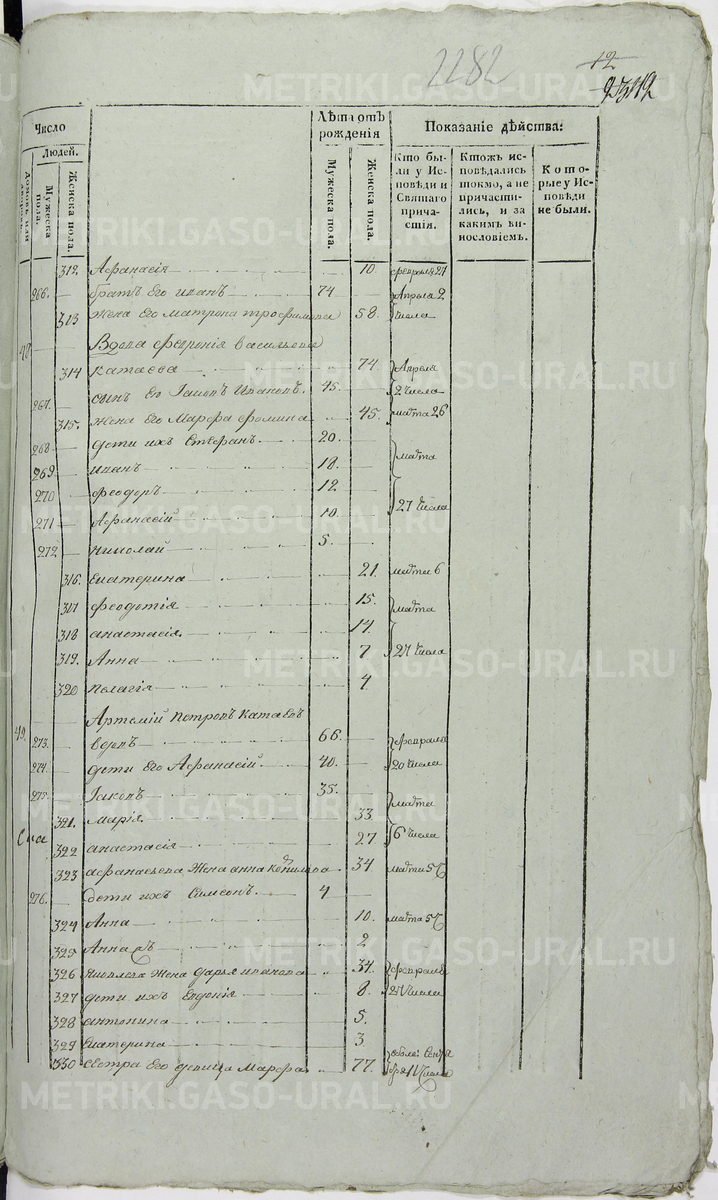 2282
12
Число
Людей.
Мужеска пола.
Женска пола.
Лѣта отъ рожденія
Мужеска пола.
Женска пола.
Показаніе дѣйства:
Кто были у Исповѣди и Святаго причастія.
Ктожъ исповѣдались токмо, а не причастились, и за какимъ винословіемъ.
Которые у Исповѣди не были.
312. Афанасія 10 февраля 27
266. братъ Его иванъ 74 Апреля 2
313 жена Его матрона трофимова 58. числа
48 Вдова феврония васильева
314 катаева 74 Апреля
267. сынъ Ея Іаковъ Ивановъ. 45. 2 числа
315. жена Его Марфа фомина 45. марта 26
268 дети ихъ Стефанъ 20. марта
269 иванъ 18.
270 феодоръ 12 27 числа
271 Афанасій 10.
272 николай 5.
316. Екатерина 21. марта 6
317 феодотія 15. марта
318 анастасія. 14.
319. Анна 7 27 числа
320 пелагія 4.
49. Артемій петровъ катаевъ
273. вдовъ 66. февраля
274. дети Его Афанасій. 40. 20 числа
275. Іаковъ 35. марта
321. марія. 33
322 анастасія 27 6 числа
323 афанасьева жена анна 34 марта 5
276. дети ихъ Симеонъ. 4
324 Анна 10. марта 5
325 Анна 2
326 жена дарья иванова 34. февраля
327 дети ихъ Евдокія 8. 27 числа
328 антонина 5.
329 Екатерина 3
330 сестра Его девица Марфа 77.
METRIKI.GASO-URAL.RU